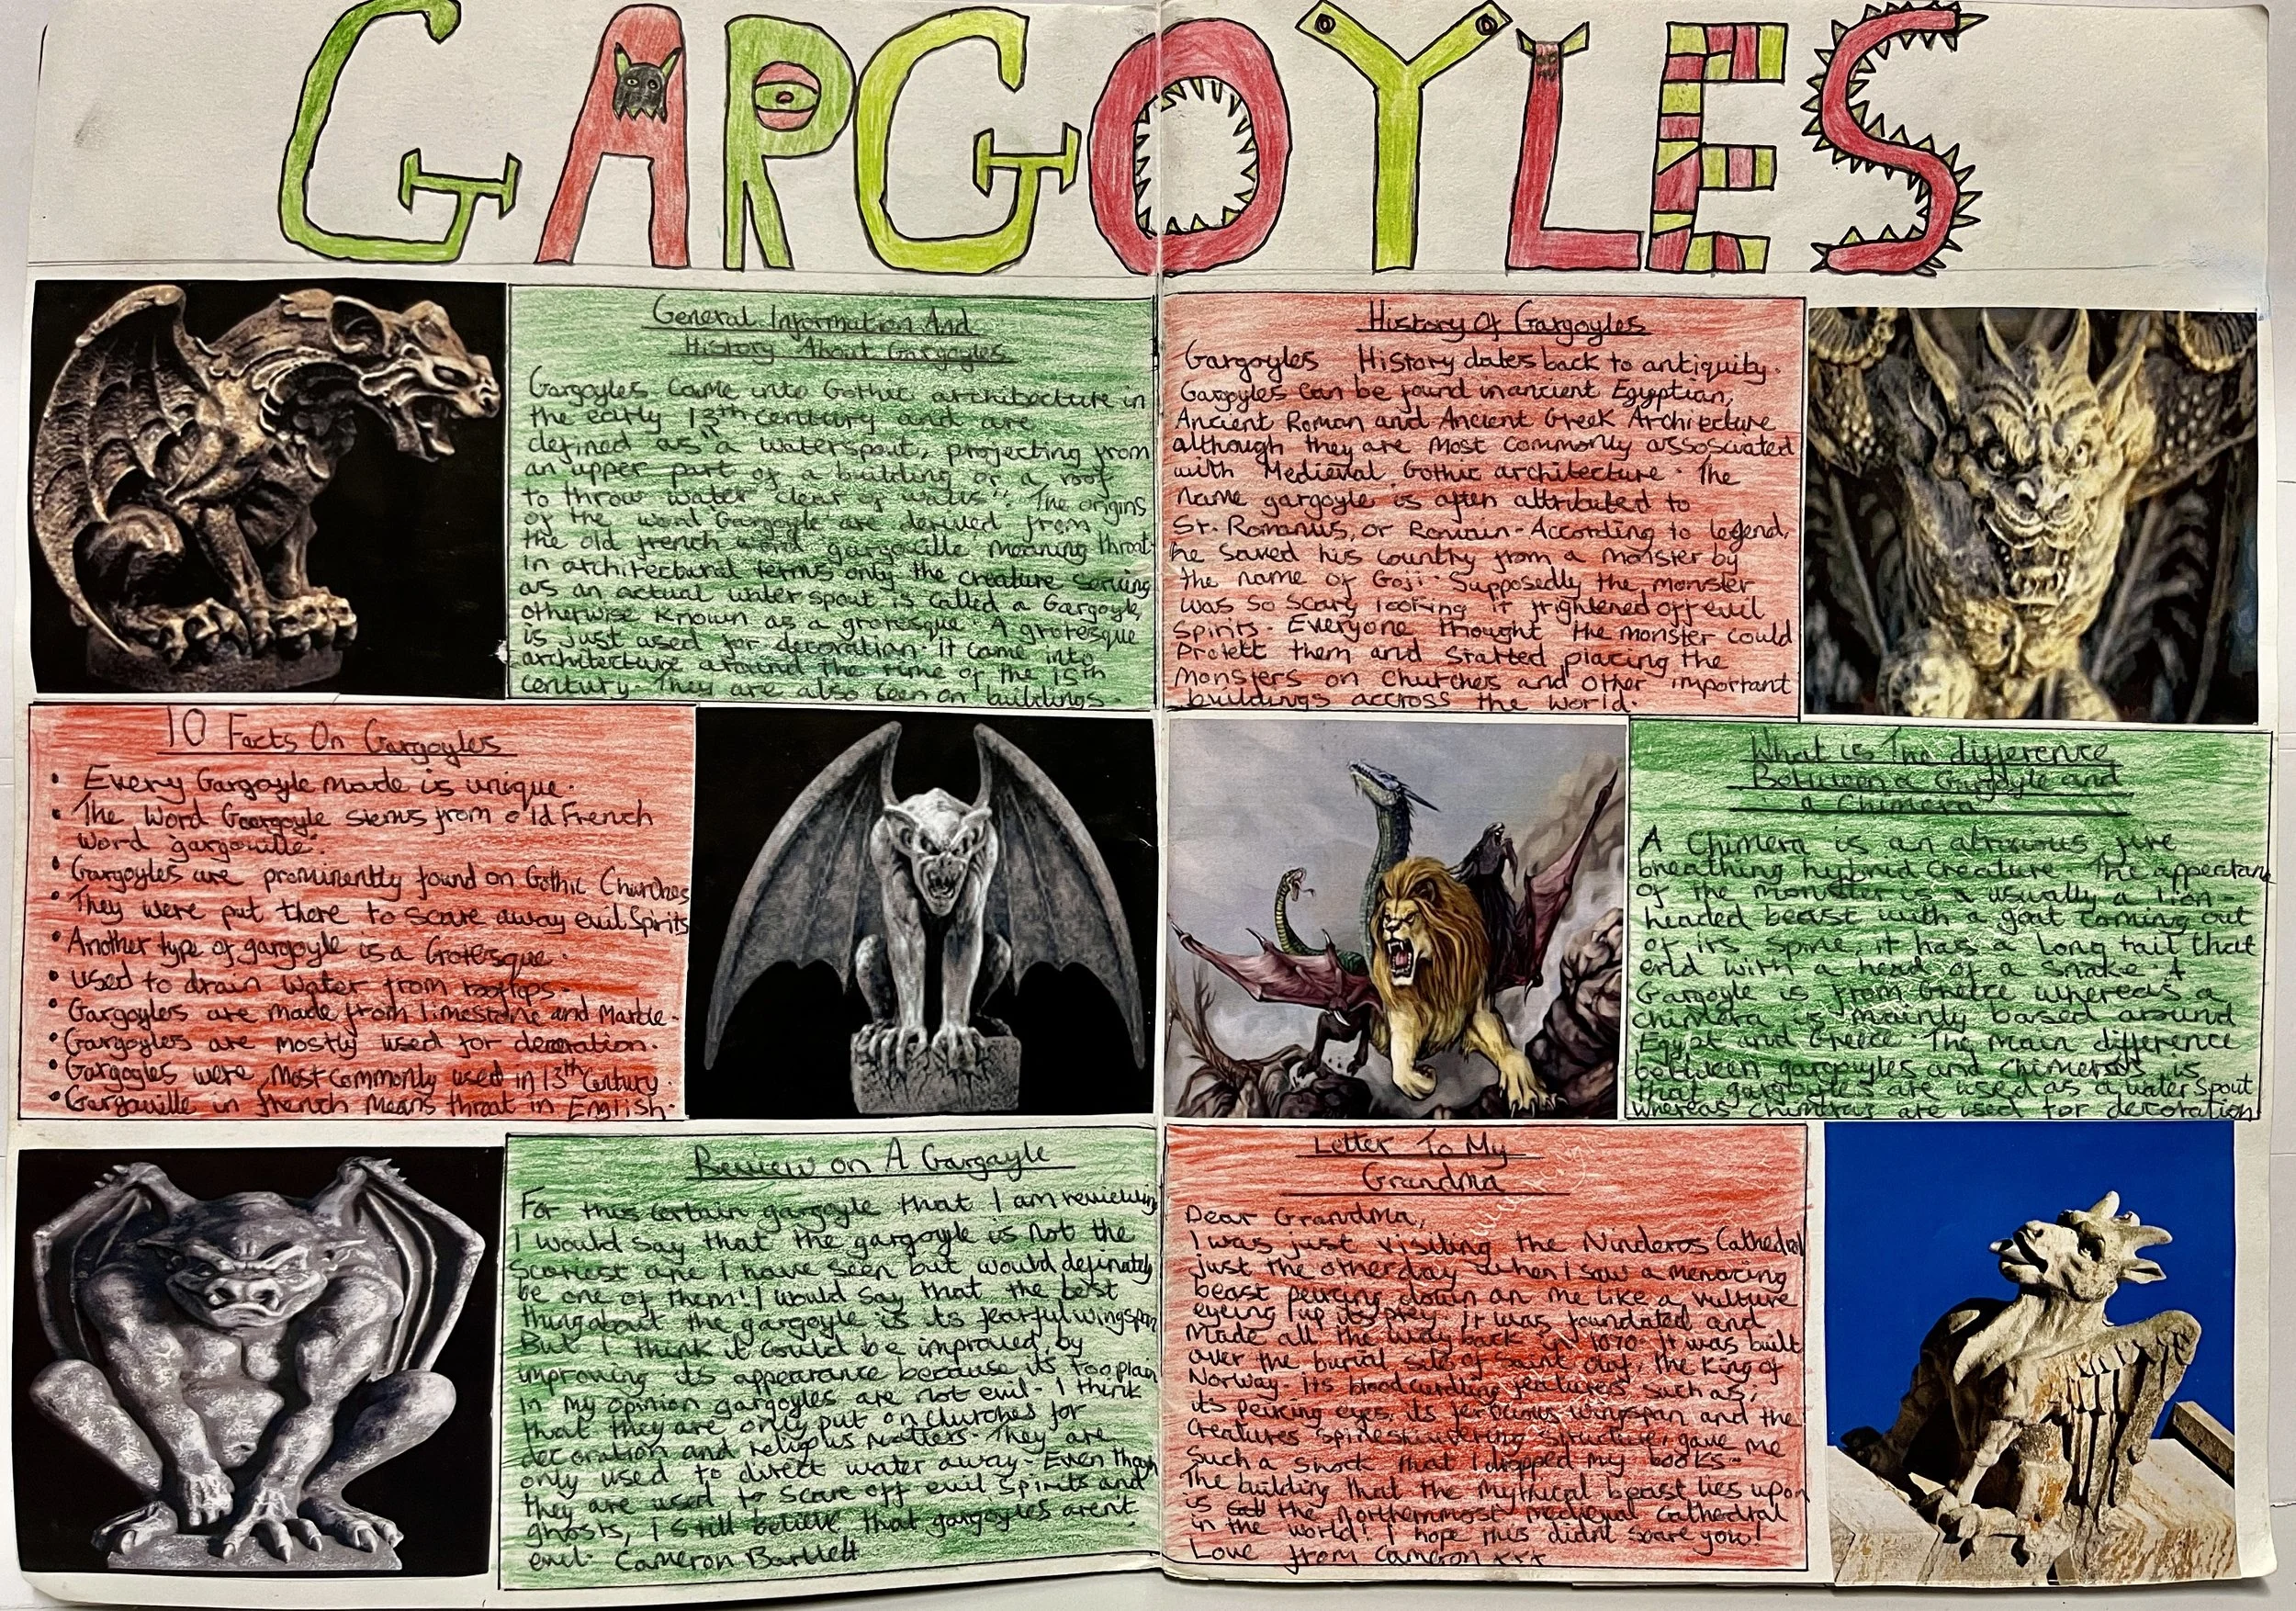 GARGOYLES
General Information And
History About Gargoyles
Gargoyles came into Gothic architecture in
the early 13th century and are
defined as "a waterspout, projecting from
an upper part of a building or a roof
to throw water clear of walls". The origins
of the word 'Gargoyle' are derived from
the old french word gargouille meaning throat.
in architectural terms only the creature serving
as an actual water spout is called a Gargoyle,
otherwise known as a grotesque. A grotesque
is just used for decoration. it came into
architecture around the time of the 15th
century. They are also seen on buildings.
History Of Gargoyles
Gargoyles History dates back to antiquity.
Gargoyles can be found in ancient Egyptian,
Ancient Roman and Ancient Greek Architecture
although they are most commonly assosciated
with Medieval, Gothic architecture. The
name gargoyle is often attributed to
St. Romanus, or Romain - According to legend,
he saved his country from a monster by
the name of Goji. Supposedly the monster
was so scary looking it frightened off evil
spirits. Everyone thought the monster could
protect them and started placing the
monsters on churches and other important
buildings accross the world.
10 Facts On Gargoyles
• Every Gargoyle made is unique.
• The Word Gargoyle stems from old French
word 'gargouille'.
• Gargoyles are prominently found on Gothic Churches
• They were put there to scare away evil Spirits
• Another type of gargoyle is a Grotesque.
• used to drain water from rooftops.
• Gargoyles are made from limestone and Marble.
• Gargoyles are mostly used for decoration.
• Gargoyles were most commonly used in 13th Century.
• Gargouille in french means throat in English.
What is The difference
Between a Gargoyle and
a Chimera
A Chimera is an atrocious fire
breathing hybrid creature. The appearance
of the monster is a usually a lion-
headed beast with a goat coming out
of its spine, it has a long tail that
end with a head of a snake. A
Gargoyle is from Greece whereas a
chimera is mainly based around
Egypt and Greece. The main difference
between gargoyles and chimeras is
that gargoyles are used as a water spout
whereas chimeras are used for decoration
Review on A Gargoyle
For this certain gargoyle that I am reviewing
I would say that the gargoyle is not the
scariest one I have seen but would definately
be one of them! I would say that the best
thing about the gargoyle is its fearful wingspan
But I think it could be improved by
improving its appearance because its too plain
in my opinion gargoyles are not evil. I think
that they are only put on churches for
decoration and religious matters. They are
only used to direct water away. Even though
they are used to scare off evil spirits and
ghosts, I still believe that gargoyles arent
evil. Cameron Bartlett
Letter To My
Grandma
Dear Grandma,
I was just visiting the Nideros Cathedral
just the other day when I saw a menacing
beast peircing down on me like a vulture
eyeing up its prey. It was foundated and
Made all the way back in 1070. It was built
over the burial site of Saint Olaf, the King of
Norway. Its bloodcurdling features such as;
it's peircing eyes, its ferocious wingspan and the
creatures spine shuddering structure, gave me
such a shock that I dropped my books.
The building that the mythical beast lies upon
is the northernmost medieval Cathedral
in the world! I hope this didnt scare you!
Love from Cameron xxx